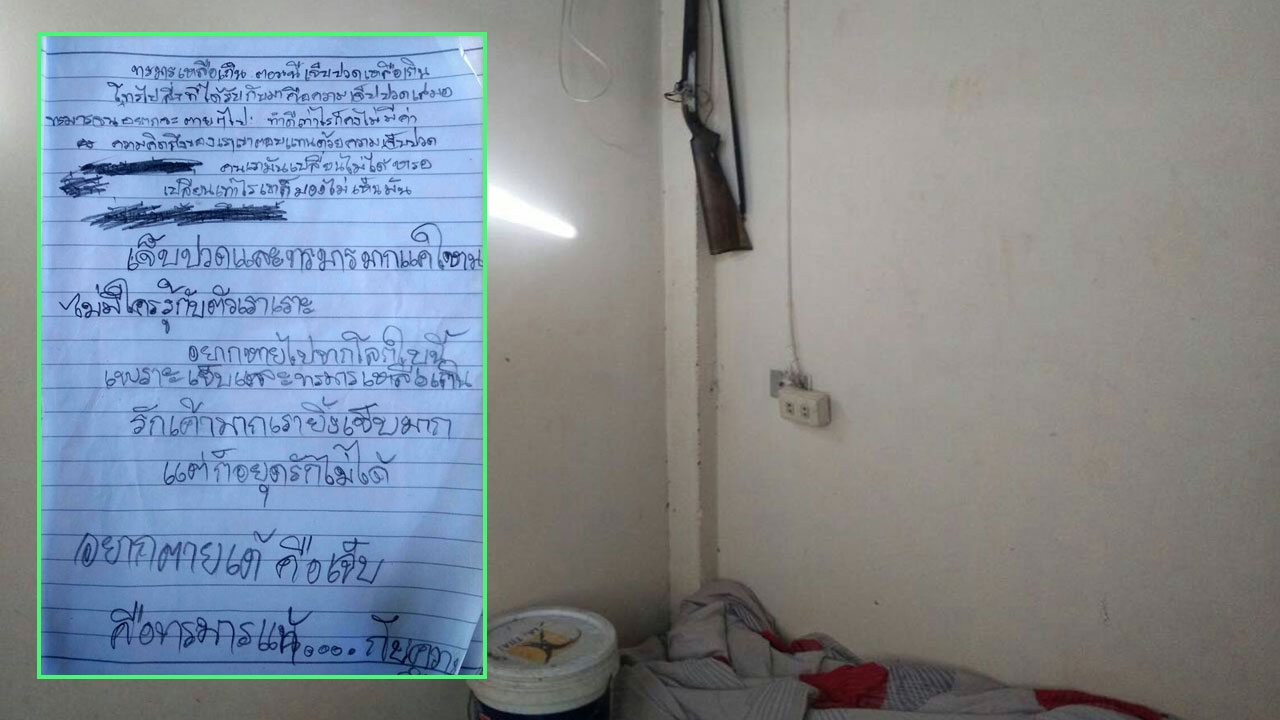 ทรมารเหลือเกิน ตอนนี้เจ็บปวดเหลือเกิน
ที่ได้รับกลับมาคือความเจ็บปวดเสมอ
ทรมารจนอยากจะตายๆไป ทำดีเท่าไรก็คงไม่มีค่า
ความเจ็บปวด
คนเรามันเปลี่ยนไม่ได้หรอ
เปลี่ยนเท่าไรเขาก็มองไม่เห็นมัน
เจ็บปวดและทรมารมากแค่ไหน
ไม่มีใครรู้กับตัวเราเราะ
อยากหายไปจากโลกใบนี้
เพราะเจ็บและทรมารเหลือเกิน
รักเค้ามากเรายิ่งเจ็บมาก
แต่ก็อยุดรักไม่ได้
อยากตายเด้ คือเจ็บ
คือทรมารแท้....